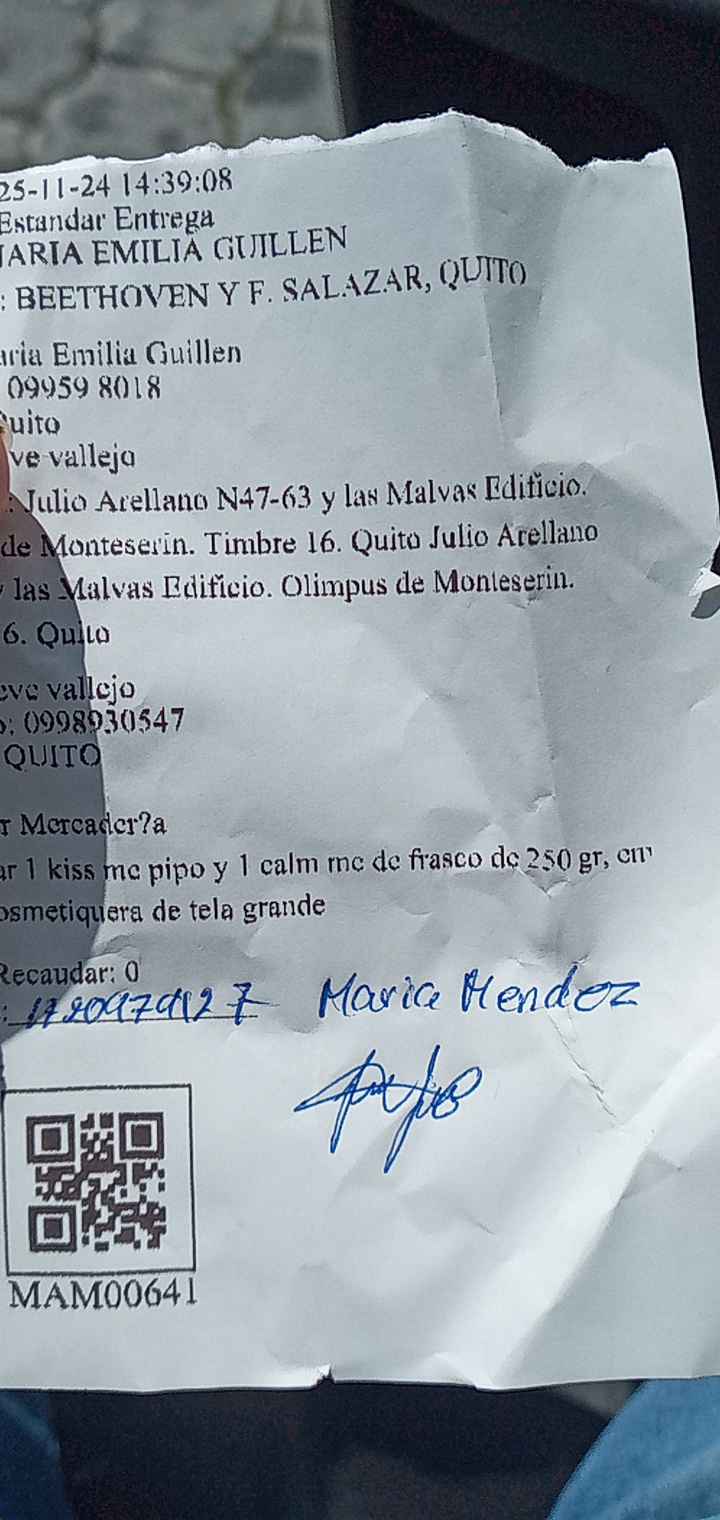 25-11-24 14:39:08
Estandar Entrega
MARIA EMILIA GUILLEN
: BEETHOVEN Y F. SALAZAR, QUITO
aria Emilia Guillen
09959 8018
Quito
ve vallejo
: Julio Arellano N47-63 y las Malvas Edificio.
de Monteserin. Timbre 16. Quito Julio Arellano
y las Malvas Edificio. Olimpus de Monteserin.
6. Quito
eve vallejo
o: 0998930547
QUITO
r Mercader?a
ar 1 kiss me pipo y 1 calm me de frasco de 250 gr, en
osmetiquera de tela grande
Recaudar: 0
: Maria Mendez
MAM00641